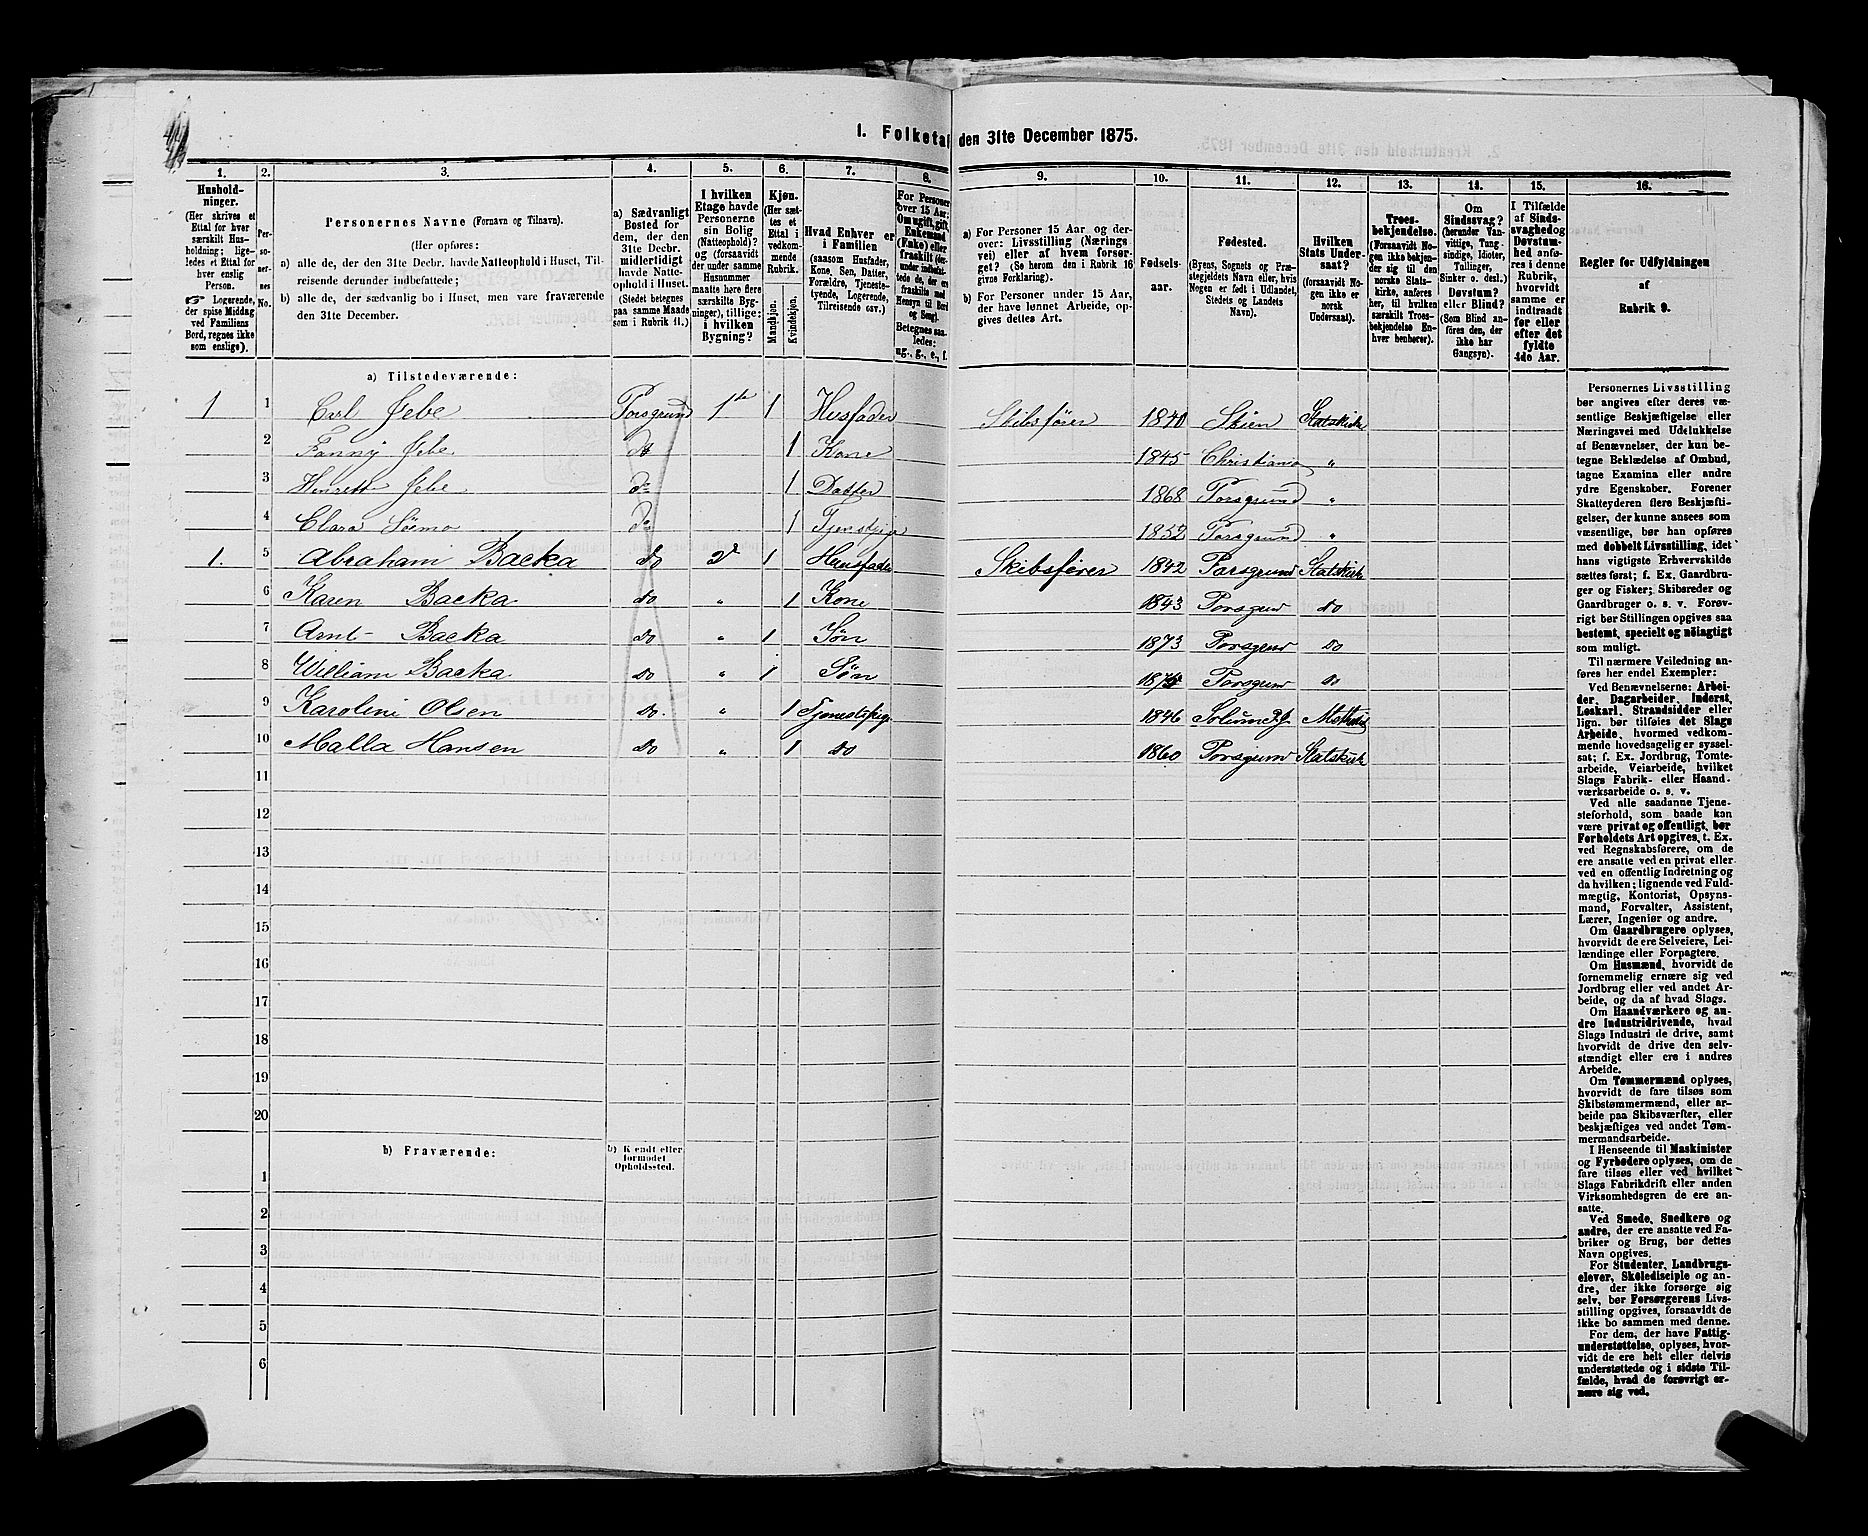 1. Folketal den 31te December 1875.
1. 2. 3. 4. 5. 6. 7. 8. 9. 10. 11. 12. 13. 14. 15. 16.
Husholdninger.
(Her skrives et
Ettal for hver
særskilt Husholdning;
ligeledes et Ettal for
hver enslig
Person.
☞ Logerende,
der spise Middag
ved Familiens
Bord, regnes ikke
som enslige).
Personernes No.
Personernes Navne (Fornavn og Tilnavn).
(Her opføres:
a) alle de, der den 31te Decbr. havde Natteophold i Huset, Tilreisende
derunder indbefattede;
b) alle de, der sædvanlig bo i Huset, men vare fraværende
den 31te December.
a) Sædvanligt
Bosted for
dem, der den
31te Decbr.
midlertidigt
havde Natteophold
i Huset.
(Stedet betegnes
paa samme Maade
som i Rubrik 11.)
I hvilken
Etage havde
Personerne
sin Bolig
(Natteophold)?
og (forsaavidt
der under samme
Husnummer
maatte høre flere
særskilte Bygninger),
tillige:
i hvilken
Bygning?
Kjøn.
(Her sættes
et
Ettal i
vedkommende
Rubrik.
Mandkjøn.
Kvindekjøn.
Hvad Enhver er
i Familien
(saasom Husfader,
Kone, Søn, Datter,
Forældre, Tjenestetyende,
Logerende,
Tilreisende osv.)
For Personer
over 15 Aar:
Om ugift, gift,
Enkemand
(Enke) eller
fraskilt (derunder
indbefattede
de, der ere
fraskilte med
Hensyn til Bord
og Seng).
Betegnes saaledes:
ug., g., e., f.
a) For Personer 15 Aar og derover:
Livsstilling (Næringsvei)
eller af hvem forsørget?
(Se herom den i Rubrik 16
givne Forklaring).
b) For Personer under 15 Aar,
der have lønnet Arbeide, opgives
dettes Art.
Fødselsaar.
Fødested.
(Byens, Sognets og Præstegjeldets
Navn eller, hvis
Nogen er født i Udlandet,
Stedets og Landets
Navn).
Hvilken
Stats Undersaat?
(forsaavidt Nogen
ikke er
norsk
Undersaat).
Troesbekjendelse.
(Forsaavidt Nogen
ikke bekjender
sig til den
norske Statskirke,
anføres
her, til hvilken
særskilt Troesbekjendelse
Enhver
henhører).
Om
Sindssvag?
(herunder Vanvittige,
Tungsindige,
Idioter,
Tullinger,
Sinker o. desl.)
Døvstum?
eller Blind?
(Som Blind anføres
den, der
ikke har
Gangsyn).
I Tilfælde
af Sindssvaghed
og
Døvstumhed
anføres
i denne
Rubrik,
hvorvidt
samme er
indtraadt
før eller
efter det
fyldte
4de Aar.
Regler for Udfyldningen
af
Rubrik 9.
a) Tilstedeværende:
1 1 Carl Jebe Porsgrund 1ste 1 Husfader Skibsfører 1840 Skien Statskirke
2 Fanny Jebe do 1 Kone 1845 Christiania "
3 Henrette Jebe do 1 Datter 1868 Porsgrund "
4 Clara Soemo do 1 1852 Porsgrund "
1. 5 Abraham Backa do 2d 1 Huusfader Skibsfører 1842 Porsgrund Statskirk
6 Karen Backa do " 1 Kone 1843 Porsgrund do
7 Arnt Backa do " 1 Søn 1873 Porsgrund do
8 William Backa do " 1 Søn 1875 Porsgrund do
9 Karoline Olsen do. " 1 Tjenestepige 1846 Solum Pgj.
10 Malla Hansen do " 1 do 1860 Porsgrund Statskirk
11
12
13
14
15
16
17
18
19
20
b) Fraværende:
b) Kjendt eller
formodet
Opholdssted.
1
2
3
4
5
6
Personernes Livsstilling
bør angives efter deres væsentlige
Beskjæftigelse eller
Næringsvei med Udelukkelse
af Benævnelser, der kun betegne
Beklædelse af Ombud,
tagne Examina eller andre
ydre Egenskaber. Forener
Skatteyderen flere Beskjæftigelser,
der kunne ansees som
væsentlige, bør han opføres
med dobbelt Livsstilling, idet
hans vigtigste Erhvervskilde
sættes først; f. Ex. Gaardbruger
og Fisker; Skibsreder og
Gaardbruger o. s. v. Forøvrigt
bør Stillingen opgives saa
bestemt, specielt og nöiagtigt
som muligt.
Til nærmere Veiledning anføres
her endel Exempler:
Ved Benævnelserne: Arbeider,
Dagarbeider, Inderst,
Løskarl, Strandsidder eller
lign. bør tilføies det Slags
Arbeide, hvormed vedkommende
hovedsagelig er sysselsat;
f. Ex. Jordbrug, Tomtearbeide,
Veiarbeide, hvilket
Slags Fabrik- eller Haandværksarbeide
o. s. v.
Ved alle saadanne Tjenesteforhold,
som baade kan
være privat og offentligt, bør
Forholdets Art opgives, f. Ex.
ved Regnskabsførere, om de
ere ansatte ved en privat eller
ved en offentlig Indretning og
da hvilken; lignende ved Fuldmægtig,
Kontorist, Opsynsmand,
Forvalter, Assistent,
Lærer, Ingeniør og andre.
Om Gaardbrugere oplyses,
hvorvidt de ere Selveiere, Leilændinge
eller Forpagtere.
Om Husmænd, hvorvidt de
fornemmelig ernære sig ved
Jordbrug eller ved andet Arbeide,
og da af hvad Slags.
Om Haandværkere og andre
Industridrivende, hvad
Slags Industri de drive, samt
hvorvidt de drive den selvstændigt
eller ere i andres
Arbeide.
Om Tømmermænd oplyses,
hvorvidt de fare tilsøs som
Skibstømmermænd, eller arbeide
paa Skibsværfter, eller
beskjæftiges ved andet Tømmermandsarbeide.
I Henseende til Maskinister
og Fyrbødere oplyses, om de
fare tilsøs eller ved hvilket
Slags Fabrikdrift eller anden
Virksomhedsgren de ere ansatte.
Ved Smede, Snedkere og
andre, der ere ansatte ved Fabriker
og Brug, bør dettes
Navn opgives.
For Studenter, Landbrugselever,
Skoledisciple og andre,
der ikke forsørge sig
selv, bør Forsørgerens Livsstilling
opgives, forsaavidt de
ikke bo sammen med denne.
For dem, der have Fattigunderstøttelse,
oplyses, hvorvidt
de ere helt eller delvis
understøttede og i sidste Tilfælde,
hvad de forøvrigt ernære
sig ved.